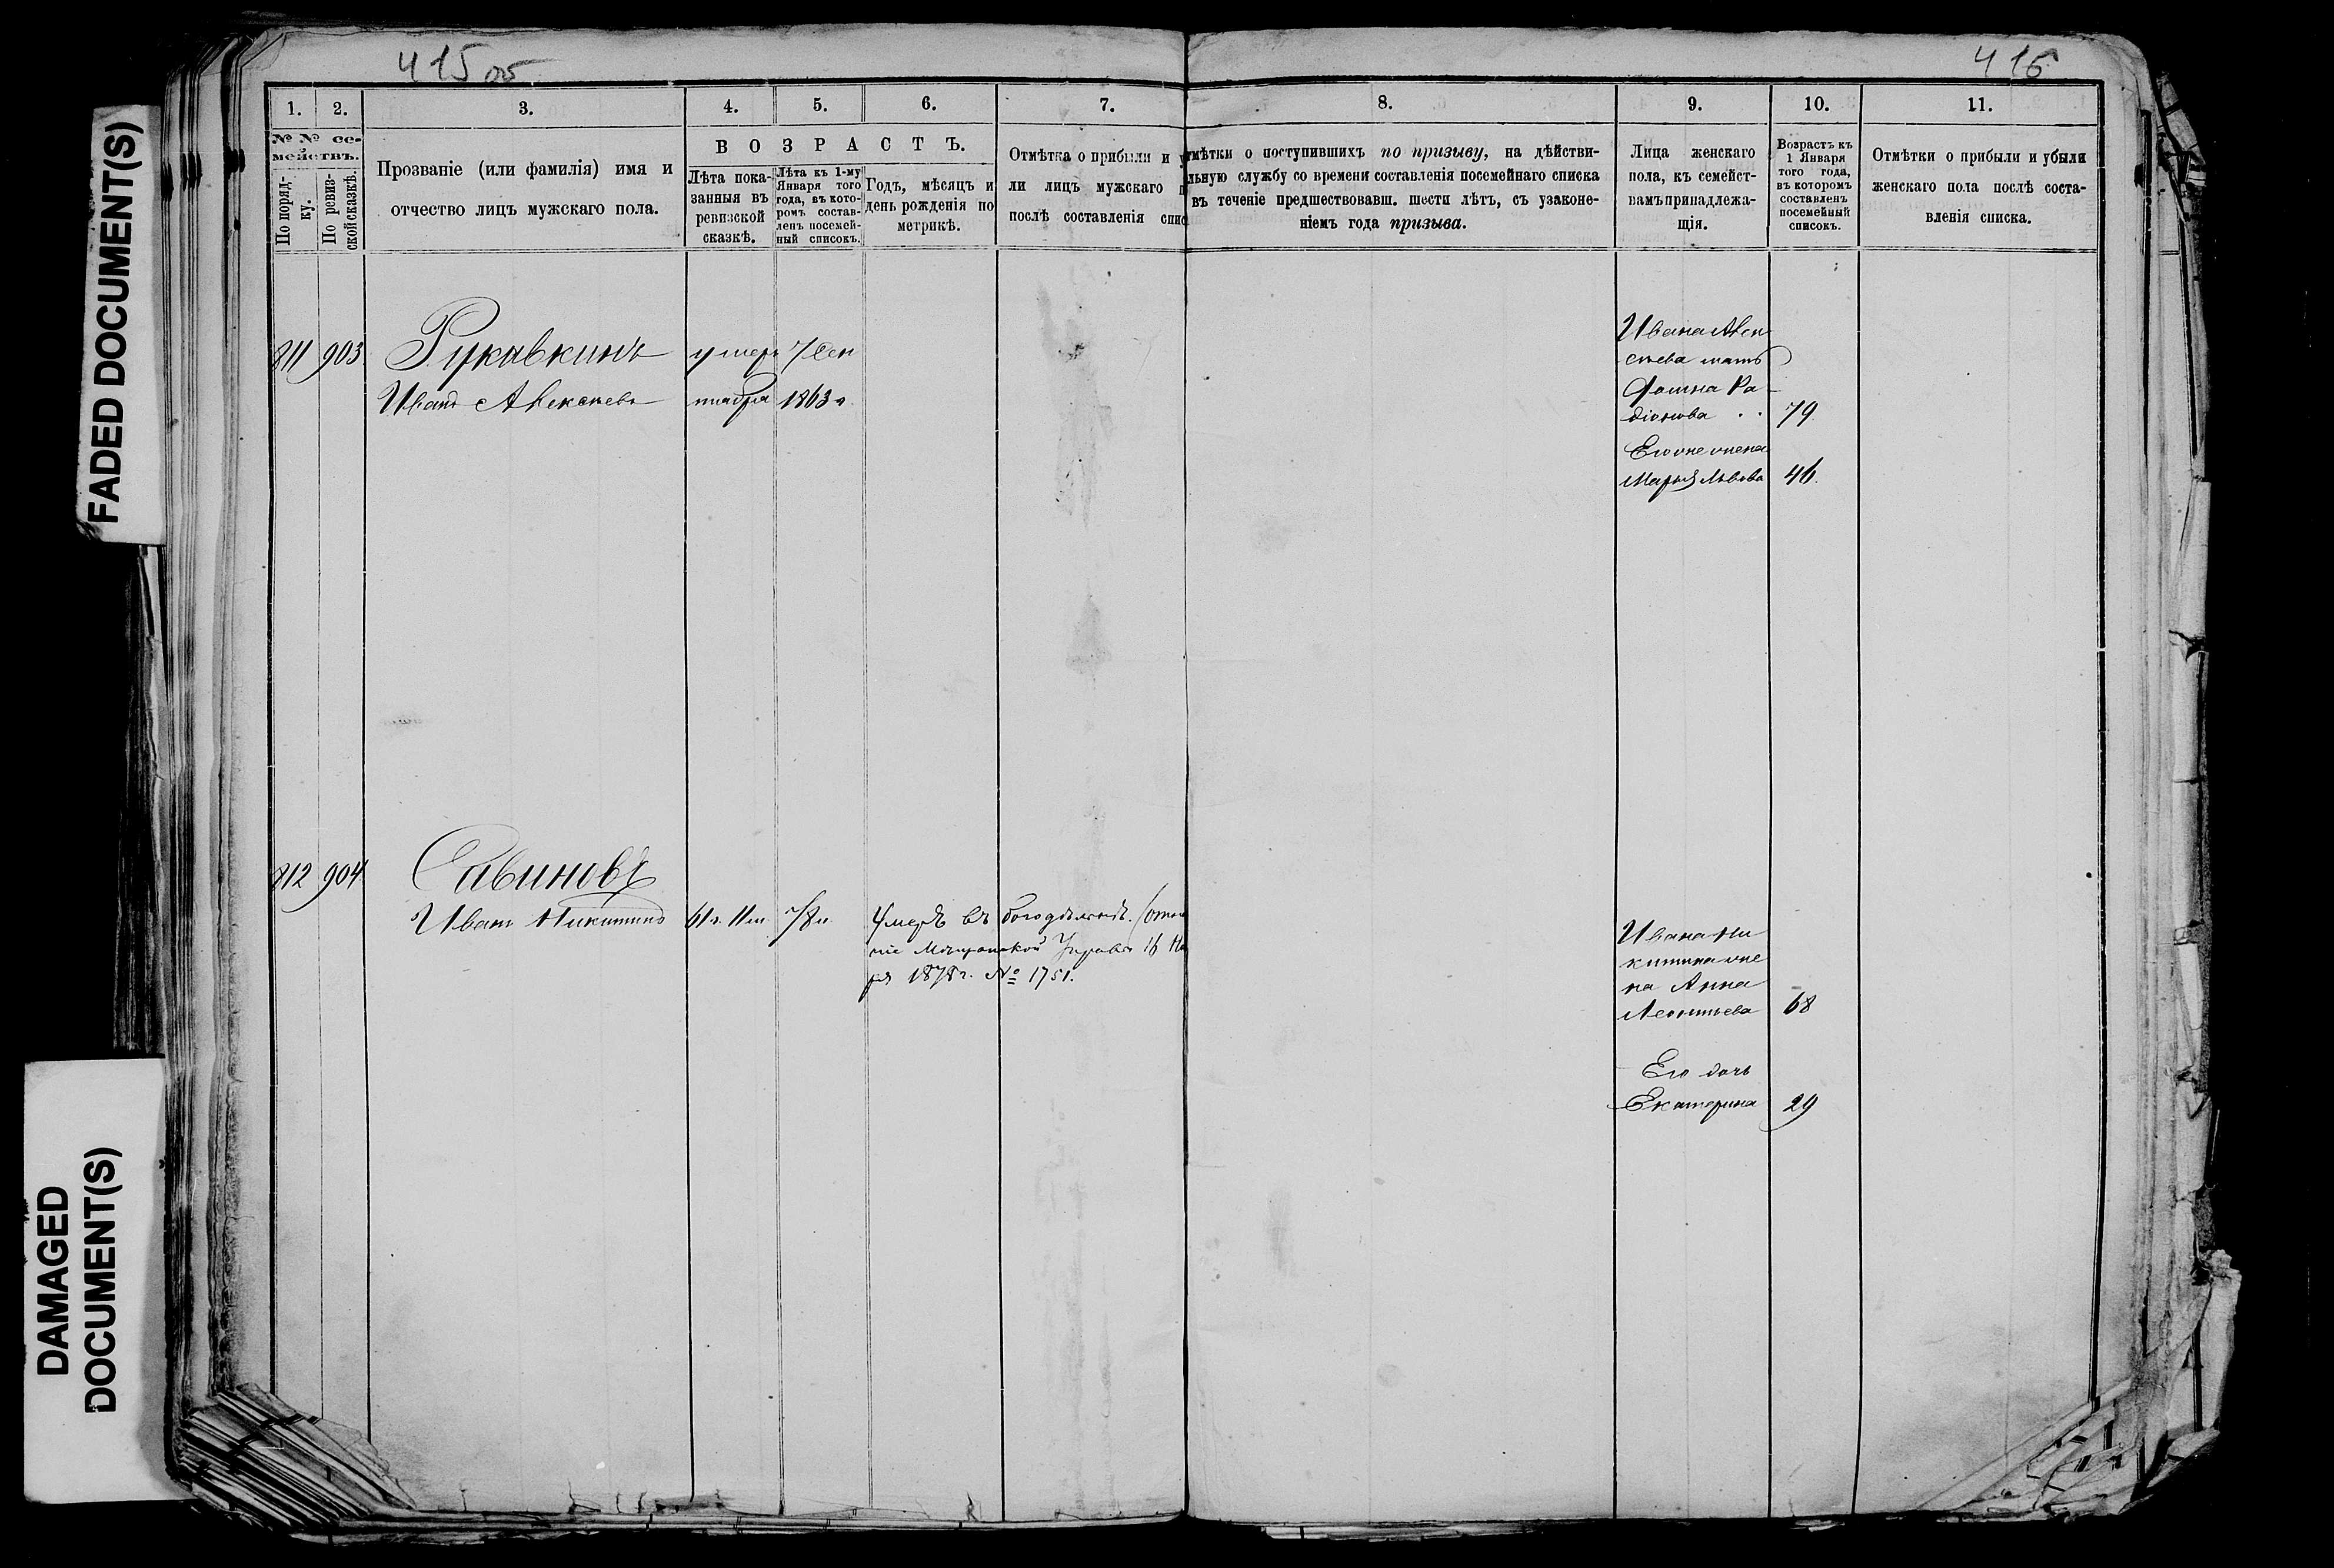 FADED DOCUMENT(S)
DAMAGED
DOCUMENT(S)
415 об
416
1.
2.
3.
4.
5.
6.
7.
8.
9.
10.
11.
№ № се-
мействъ.
По поряд-
ку.
По ревиз-
ской сказкѣ.
Прозваніе (или фамилія) имя и
отчество лицъ мужскаго пола.
ВОЗРАСТЪ.
Лѣта пока-
занныя въ
ревизской
сказкѣ.
Лѣта къ 1-му
Января того
года, въ кото-
ромъ состав-
ленъ посемей-
ный списокъ.
Годъ, мѣсяцъ и
день рожденія по
метрикѣ.
Отмѣтка о прибыли и у
ли лицъ мужскаго п
послѣ составленія спис
тмѣтки о поступившихъ по призыву, на дѣйстви-
льную службу со времени составленія посемейнаго списка
въ теченіе предшествовавш. шести лѣтъ, съ узаконе-
ніемъ года призыва.
Лица женскаго
пола, къ семейст-
вамъ принадлежа-
щія.
Возрастъ къ
1 Января
того года,
въ которомъ
составленъ
посемейный
списокъ.
Отмѣтки о прибыли и убыли
женскаго пола послѣ соста-
вленія списка.
811 903 Рукавкинъ умеръ 7 Сен
Иванъ Алексѣевъ тября 1863 г.
Ивана Алек
сѣева мать
Фомина Ра-
діонова 79
Его же жена
Марья Львова 46.
812 904 Савиновъ
Иванъ Никитинъ 61 г. 11 м. 78 л. Умеръ въ богодѣльнѣ. (отно
ніе Мѣщанской Управы 16 Но
ря 1878 г. № 1751.
Ивана Ни
китина же
на Анна
Леонтьева 68
Его дочь
Екатерина 29